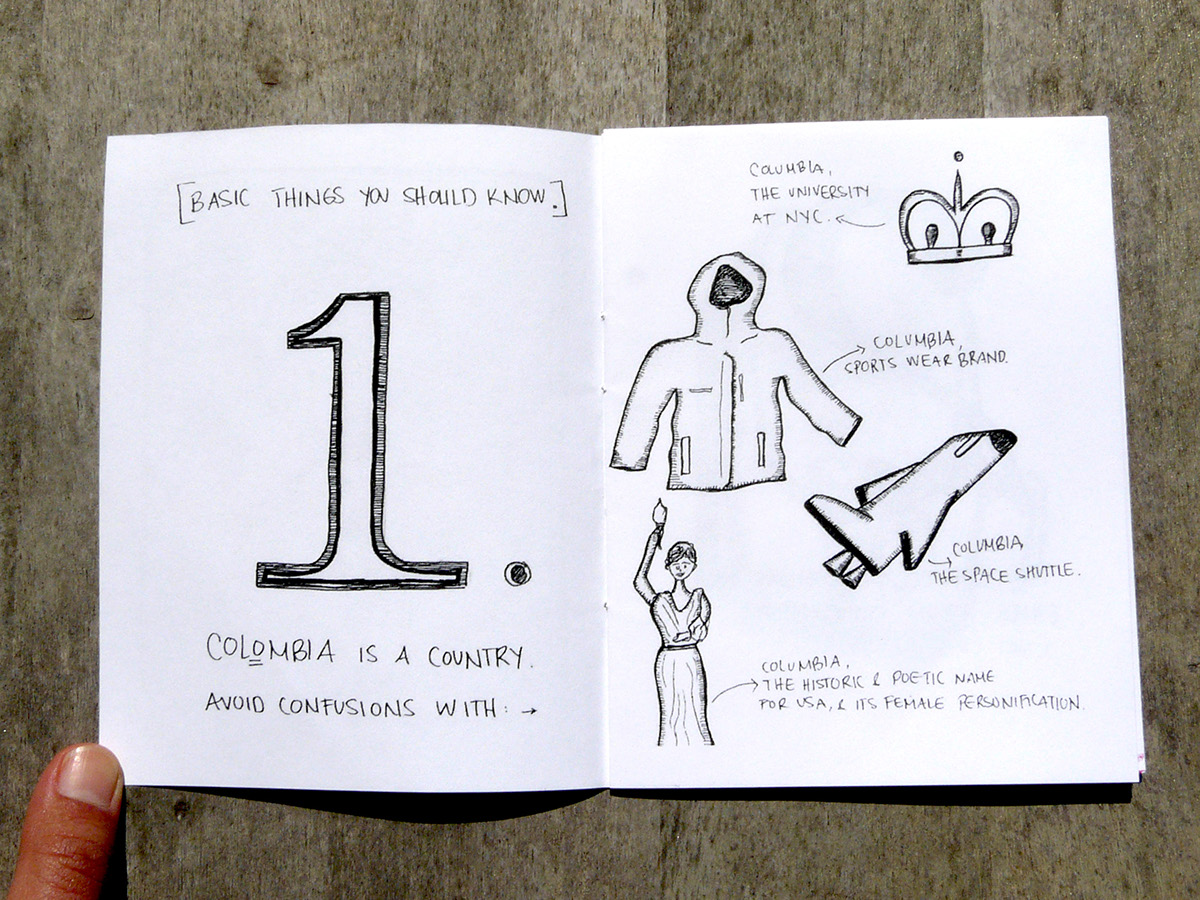 [BASIC THINGS YOU SHOULD KNOW.]
1.
COLOMBIA IS A COUNTRY.
AVOID CONFUSIONS WITH: →
COLUMBIA,
THE UNIVERSITY
AT NYC.
COLUMBIA,
SPORTS WEAR BRAND.
COLUMBIA,
THE SPACE SHUTTLE.
COLUMBIA,
THE HISTORIC & POETIC NAME
FOR USA, & ITS FEMALE PERSONIFICATION.